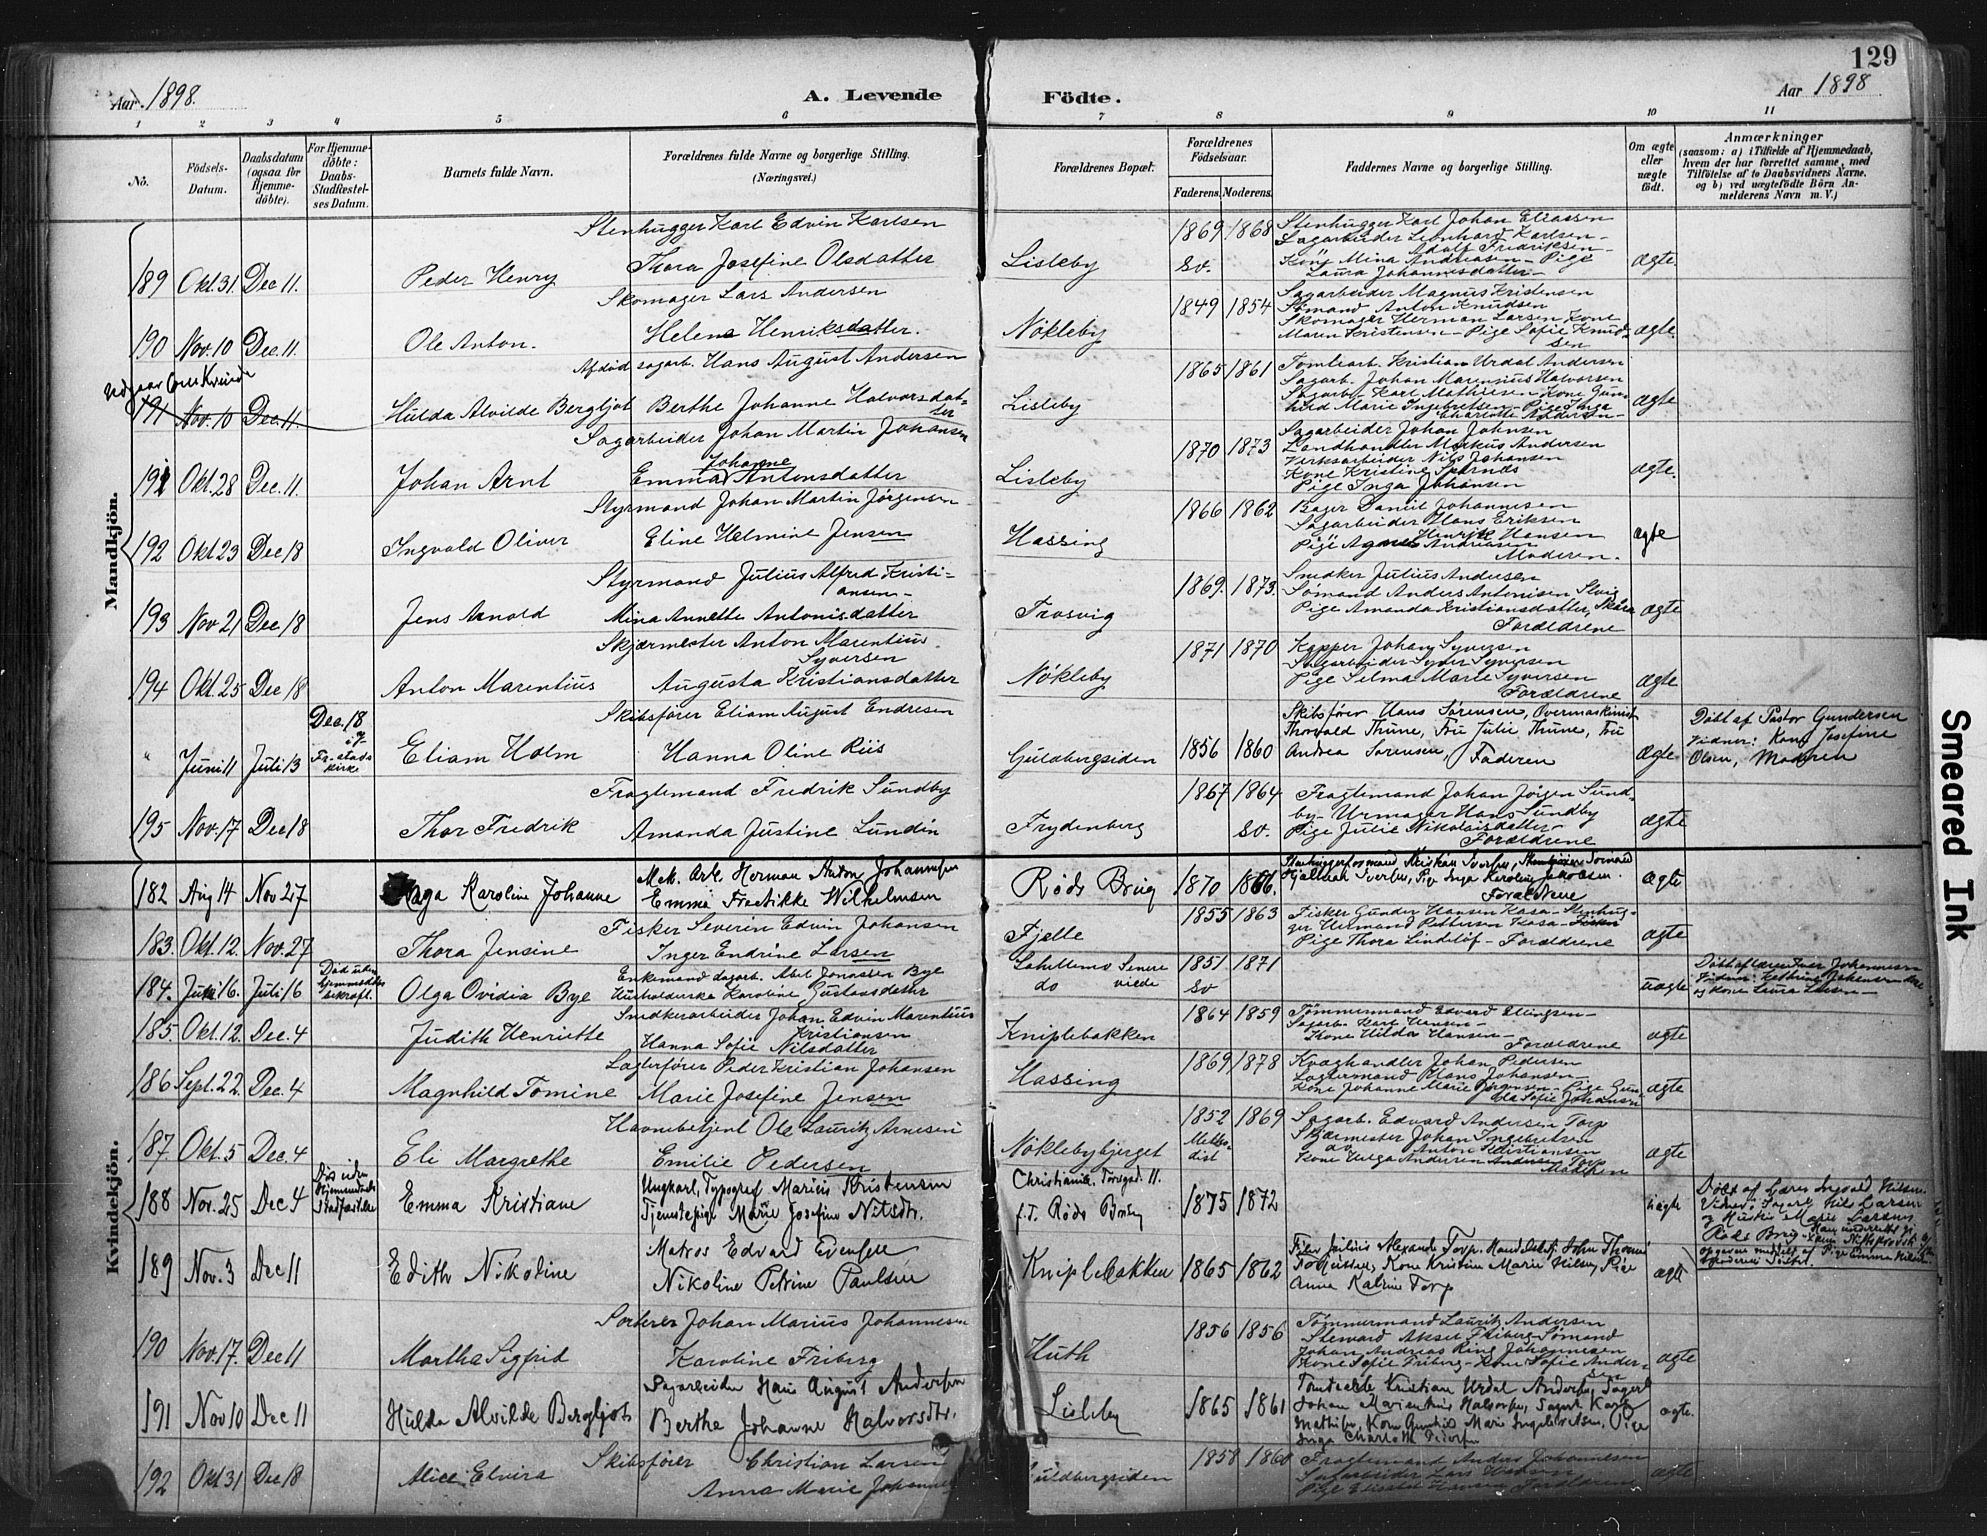 129
Aar 1898.
A. Levende
Födte.
Aar 1898
1 2 3 4 5 6 7 8 9 10 11
No.
Födsels-Datum.
Daabsdatum (ogsaa for Hjemme-döbte).
For Hjemme-döbte: Daabs-Stadfæstel-ses Datum.
Barnets fulde Navn.
Forældrenes fulde Navne og borgerlige Stilling. (Næringsvei.)
Forældrenes Bopæl.
Forældrenes Födselsaar.
Faderens. Moderens.
Faddernes Navne og borgerlige Stilling.
Om ægte eller uægte födt.
Anmærkninger
(saasom: a) i Tilfælde af Hjemmedaab, hvem der har forrettet samme, med Tilföielse af to Daabsvidners Navne, og b) ved uægtefödte Börn An-melderens Navn m. V.)
Mandkjön.
Stenhugger Karl Edvin Karlsen 1869 1868 Stenhugger Karl Johan Eliassen
Sagarbeider Leonhard Karlsen
Adolf Fredriksen
189 Okt. 31. Dec 11. Peder Henry Thora Josefine Olsdatter Lisleby sv. Kone Mina Andreasen - Pige ægte.
Laura Johannesdatter
Skomager Lars Andersen 1849 1854 Sagarbeider Magnus Kristensen
Sømand Anton Knudsen
Skomager Herman Larsen Kone
190 Nov. 10 Dec. 11. Ole Anton. Helene Henriksdatter. Nøkleby Maren Kristensen - Pige Sofie Knud-sen ægte.
Afdöd sagarb. Hans August Andersen 1865 1861 Tomtearb. Kristian Urdal Andersen
Sagarb. Johan Marenius Halvorsen
191 Nov. 10 Dec. 11. Hulda Alvilde Bergljot Berthe Johanne Halvorsdat-ter Lisleby Sagarb. Karl Mathisen - Kone Gun-hild Marie Ingebretsen - Pige Inga ægte
Charlotte Andersen
Sagarbeider Johan Martin Johansen 1870 1873 Sagarbeider Johan Johnsen
Landhandler Markus Andersen
Verksarbeider Nils Johansen
191 Okt. 28 Dec. 11. Johan Arnt Emma Johanne Antonsdatter Lisleby Kone Kristine Spernæs ægte.
Pige Inga Johansen
Styrmand Johan Martin Jörgensen 1866 1862 Bager Daniel Johannesen
Sagarbeider Hans Eriksen
Henrik Hansen
192 Okt 23 Dec 18 Ingvald Oliver Eline Helmine Jensen Hassing Pige Agnes Andreasen ægte
Moderen.
Styrmand Julius Alfred Kristi-ansen 1869. 1873. Snedker Julius Andersen
Sømand Anders Antonisen Slvig
193 Nov 21 Dec 18 Jens Arnold Mina Annette Antonisdatter Trosvig Pige Amanda Kristiansdatter, Skåra ægte
Forældrene
Skjærmester Anton Marentius Syversen 1871 1870 Kapper Johan Syversen
Sagarbeider Syver Syversen
194 Okt. 25 Dec 18 Anton Marentius Augusta Kristiansdatter Nøkleby Pige Selma Marie Syversen ægte
Forældrene
Dec. 18 i Fr-stads kirke Skibsfører Eliam August Endresen Skibsfører Hans Sørensen, Overmaskinist Döbt af Pastor Gundersen
Thorvald Thune, Fru Julie Thune, Fru Vidner: Kone Josefine
" Juni 11 Juli 3 Eliam Holm Hanna Oline Riis Guldbergsiden 1856 1860 Andrea Sørensen, Faderen ægte Olsen, Moderen
Fragtemand Fredrik Sundby 1867 1864 Fragtemand Johan Jörgen Sund-by - Urmager Hans Sundby
195 Nov. 17 Dec 18 Thor Fredrik Amanda Justine Lundin Frydenberg sv. Pige Julie Nikolaisdatter ægte
Forældrene
Kvindekjön.
Mek. Arb. Herman Anton Johannesen
182 Aug 14 Nov 27 Haga Karoline Johanne Emma Fredrikke Wilhelmsen Röds Brug 1870 1866. Hjalmar Iversen, Pige Inga Karoline Jakobsen. ægte
Forældrene
Fisker Severin Edvin Johansen 1855 1863 Fisker Gunder Hansen Kasa - Stenhug-ger Hermand Pettersen Kasa
183. Okt. 12. Nov. 27 Thora Jensine Inger Endrine Larsen Fjelle Pige Thora Lindelöf - Forældrene ægte
Död uden Hjemmedaabs bekræft. Enkemand dagarb. Abel Jonassen Bye 1851 1871
184. Juli 16. Juli 16 Olga Ovidia Bye Husholderske Karoline Gustavsdatter do sv uægte og kone Laura Larsen
Snedkerarbeider Johan Edvin Marentius Kristiansen 1864 1859 Tömmermand Edvard Ellingsen
Sagarb. Karl Hansen
185. Okt. 12. Dec. 4 Judith Henriette Hanna Sofie Nilsdatter Kniplebakken Kone Hilda Hansen ægte
Forældrene
Lagterfører Peder Kristian Johansen 1869 1878 Kvæghandler Johan Pedersen
Lagtermand Hans Johansen
186 Sept. 22. Dec. 4 Magnhild Tomine Marie Josefine Jensen Hassing Kone Johanne Marie Jörgensen - Pige Gun- ægte
Sofie Johansen
Havnebetjent Ole Lauritz Arnesen 1852 1869 Sagarb. Edvard Andersen Torp
Skjærmester Johan Ingebretsen
187. Okt. 5 Dec. 4 Eli Margrethe Emilie Pedersen Nøklebybjerget Metho-dist do Anton Kristiansen ægte
Kone Helga Andersen Torp
Moderen
Död uden Hjemmedaabs Stadfæstelse Ungkarl, Typograf Marius Kristensen Christiania, Torvgad. 11. Döbt af Lærer Ingvald Nilsen.
188 Nov. 25 Dec 4 Emma Kristiane Tjenestepige Marie Josefine Nilsdtr. f. T. Röds Brug 1875 1872 uægte Vidner: Nils Larsen
og Marie Larsen
Röds Brug
189 Nov. 3 Dec 11 Edith Nikoline Matros Edvard Evensen Kniplebakken 1865 1862 Julius Alexander Torp. John Thomas ægte
Nikoline Petrine Paulsen Kone Kristine Marie Nilsen, Pige
Anne Katrine Torp
Sorterer Johan Marius Johannesen 1856 1856 Tömmermand Laurits Andersen
Steward Aksel Friberg - Sømand
Johan Andreas Ring Johannesen
190 Nov. 17. Dec 11 Martha Sigfrid Karoline Friberg Huth Kone Sofie Friberg - Kone Sofie Ander-sen ægte
Sagarbeider Hans August Andersen Kristian Urdal Andersen, Sagarb.
191 Nov 10 Dec 11 Hulda Alvilde Bergljot Berthe Johanne Halvorsdtr. Lisleby 1865 1861 Johan Marentius Halvorsen, Sagarb. Karl ægte.
Mathisen, Kone Gunhild Marie Ingebretsen, Pige
Inga Charlotte
Skibsfører Christian Larsen 1858 1860 Fragtemand Anders Johannesen
Sagarbeider Lars
192 Okt 31 Dec 18 Alice Elvira Anna Marie Johannes Guldbergsiden Pige Elisabet Hansen Forældrene ægte
Smeared Ink